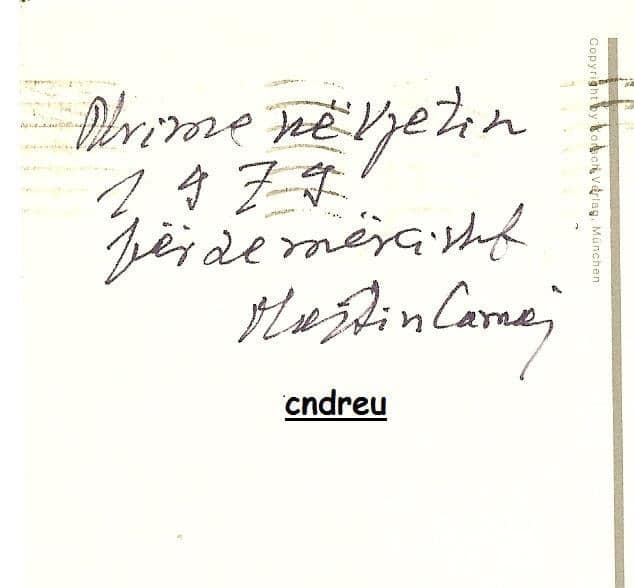 Urime në vjetin
1979
përzemërisht
Martin Camaj
cndreu
Copyright by Korsch Verlag, München